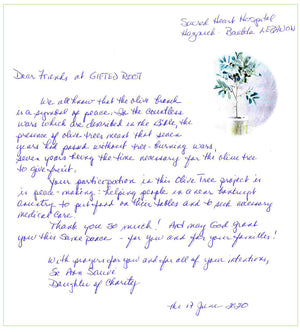 Sacred Heart Hospital
Hazmieh - Baabda LEBANON
Dear Friends at GIFTED ROOT
We all know that the olive branch
is a symbol of peace. In the countless
wars which are described in the Bible, the
presence of olive trees meant that seven
years had passed without tree-burning wars,
seven years being the time necessary for the olive tree
to give fruit.
Your participation in this Olive Tree project is
in peace-making: helping people in a near bankrupt
country to put food on their tables and to seek necessary
medical care.
Thank you so much! And may God grant
you this same peace - for you and for your families!
With prayers for you and for all of your intentions,
Sr Ann Sauvé
Daughter of Charity
the 17 June 2020